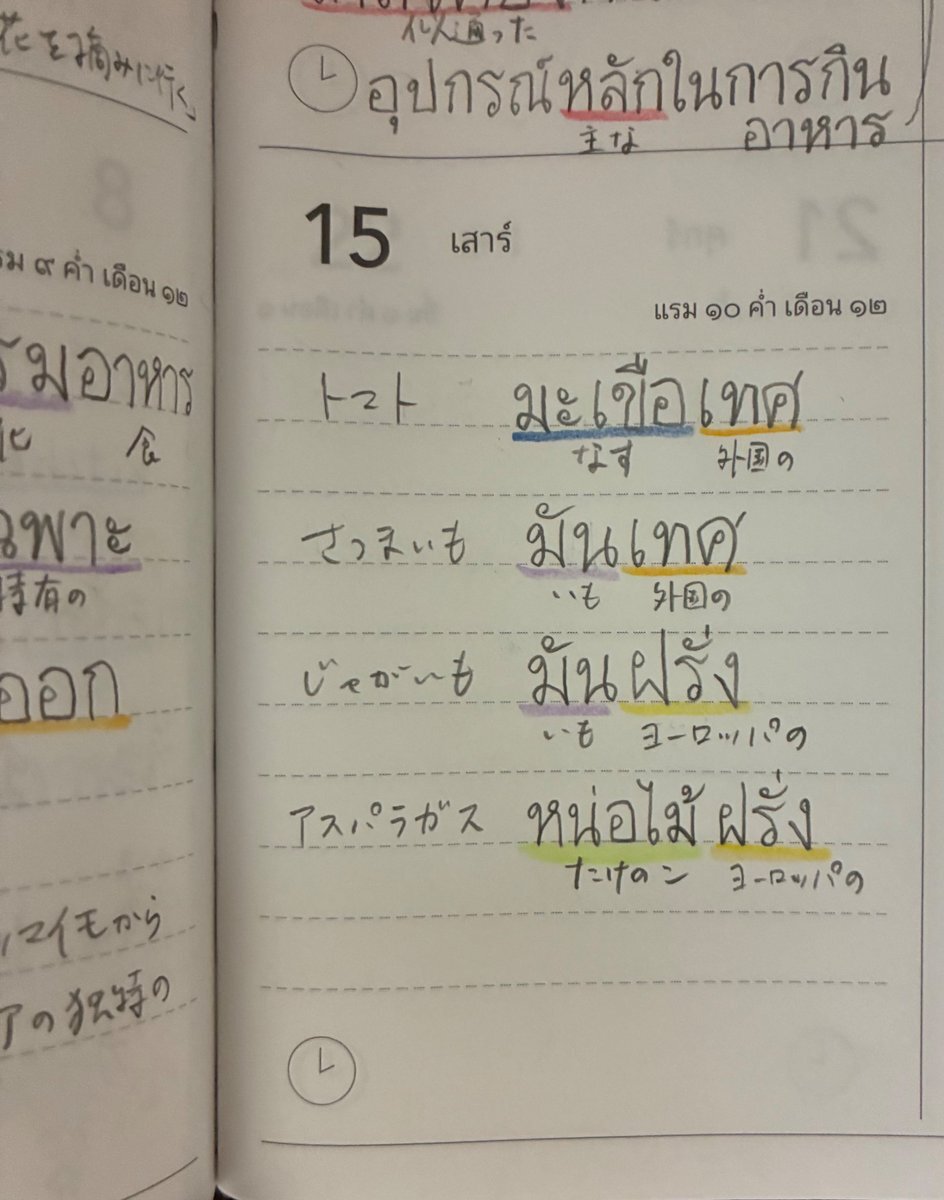 花を摘みに行く
8
แรม ๙ ค่ำ เดือน ๑๒
อาหาร
食
เฉพาะ
特有の
ออก
マイモから
アの独特の
似通った
อุปกรณ์หลักในการกิน
主な
อาหาร
15 เสาร์
แรม ๑๐ ค่ำ เดือน ๑๒
トマト มะเขือเทศ
なす 外国の
さつまいも มันเทศ
いも 外国の
じゃがいも มันฝรั่ง
いも ヨーロッパの
アスパラガス หน่อไม้ฝรั่ง
たけのこ ヨーロッパの